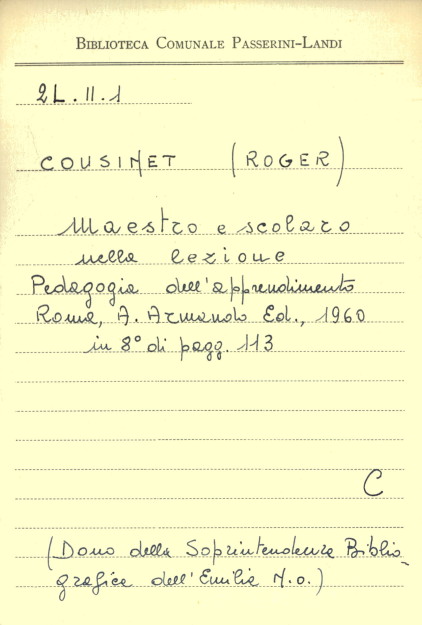 BIBLIOTECA COMUNALE PASSERINI-LANDI
2L.II.1
COUSINET (ROGER)
Maestro e scolaro
nella lezione
Pedagogia dell'apprendimento
Roma, A. Armando Ed., 1960
in 8° di pagg. 113
C
(Dono della Soprintendenza Biblio-
grafica dell'Emilia N.O.)